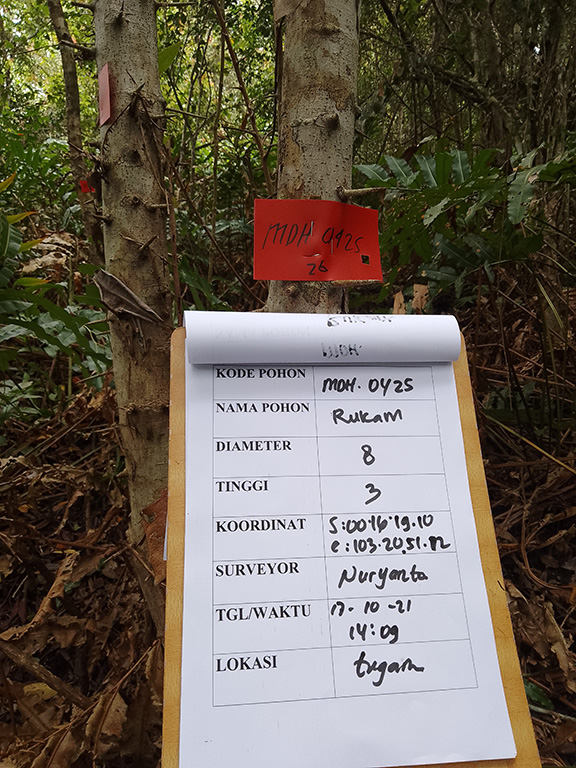 MDH 0425
26
KODE POHON MDH. 0425
NAMA POHON Rukam
DIAMETER 8
TINGGI 3
KOORDINAT S:00·16'19.10
e:103.20.51.82
SURVEYOR Nuryanto
TGL/WAKTU 17-10-21
14:09
LOKASI tugam